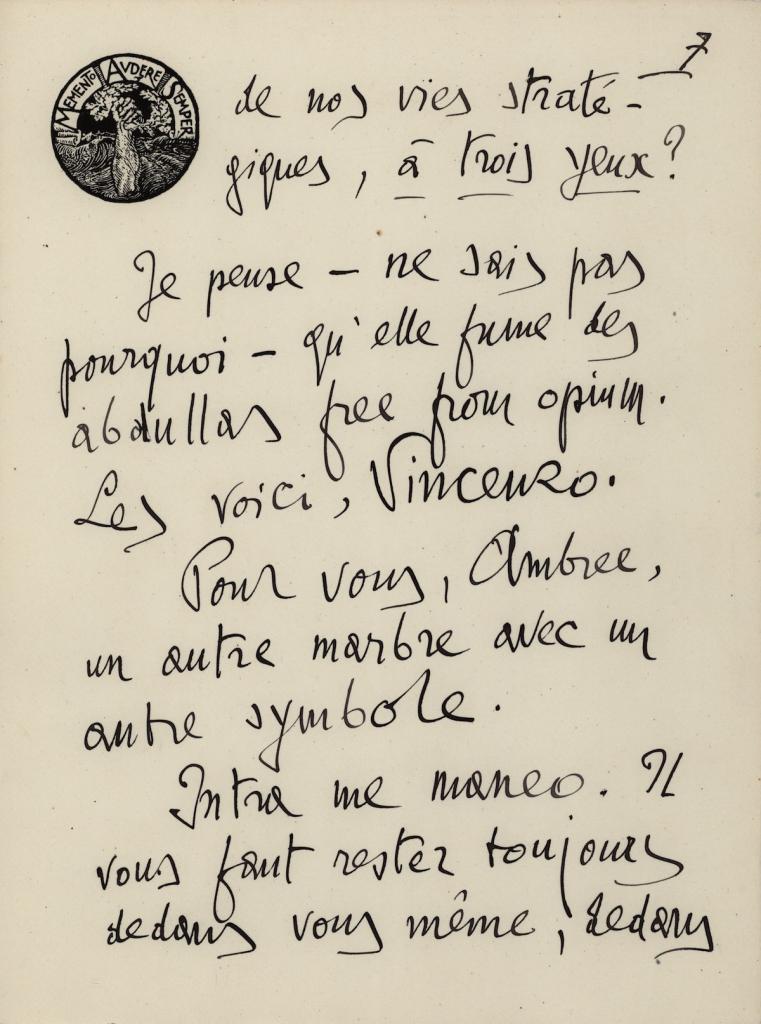 7
MEMENTO AVDERE SEMPER
de nos vies straté-
giques, à trois yeux?
Je pense – ne sais pas
pourquoi – qu'elle fume des
abdullas free from opium.
Les voici, Vincenzo.
Pour vous, Ambree,
un autre marbre avec un
autre symbole.
Intra me maneo. Il
vous faut rester toujours
dedans vous même, dedans